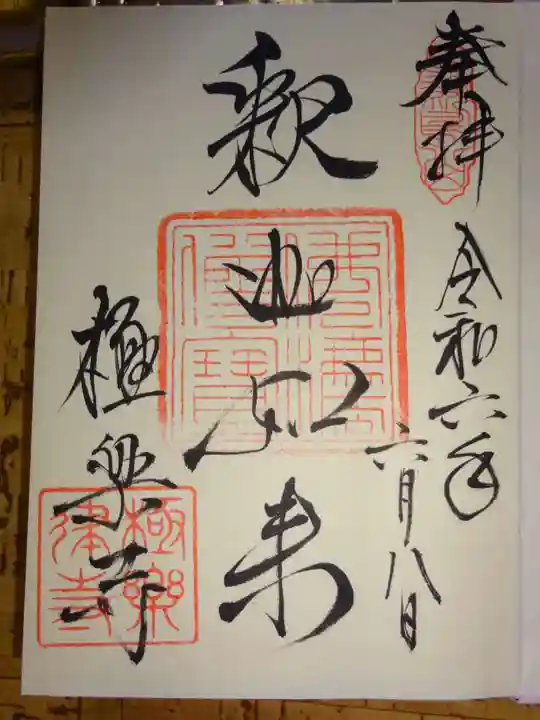 奉拝
令和六年
六月八日
釈迦如来
極楽寺
佛法僧寶
極楽律寺